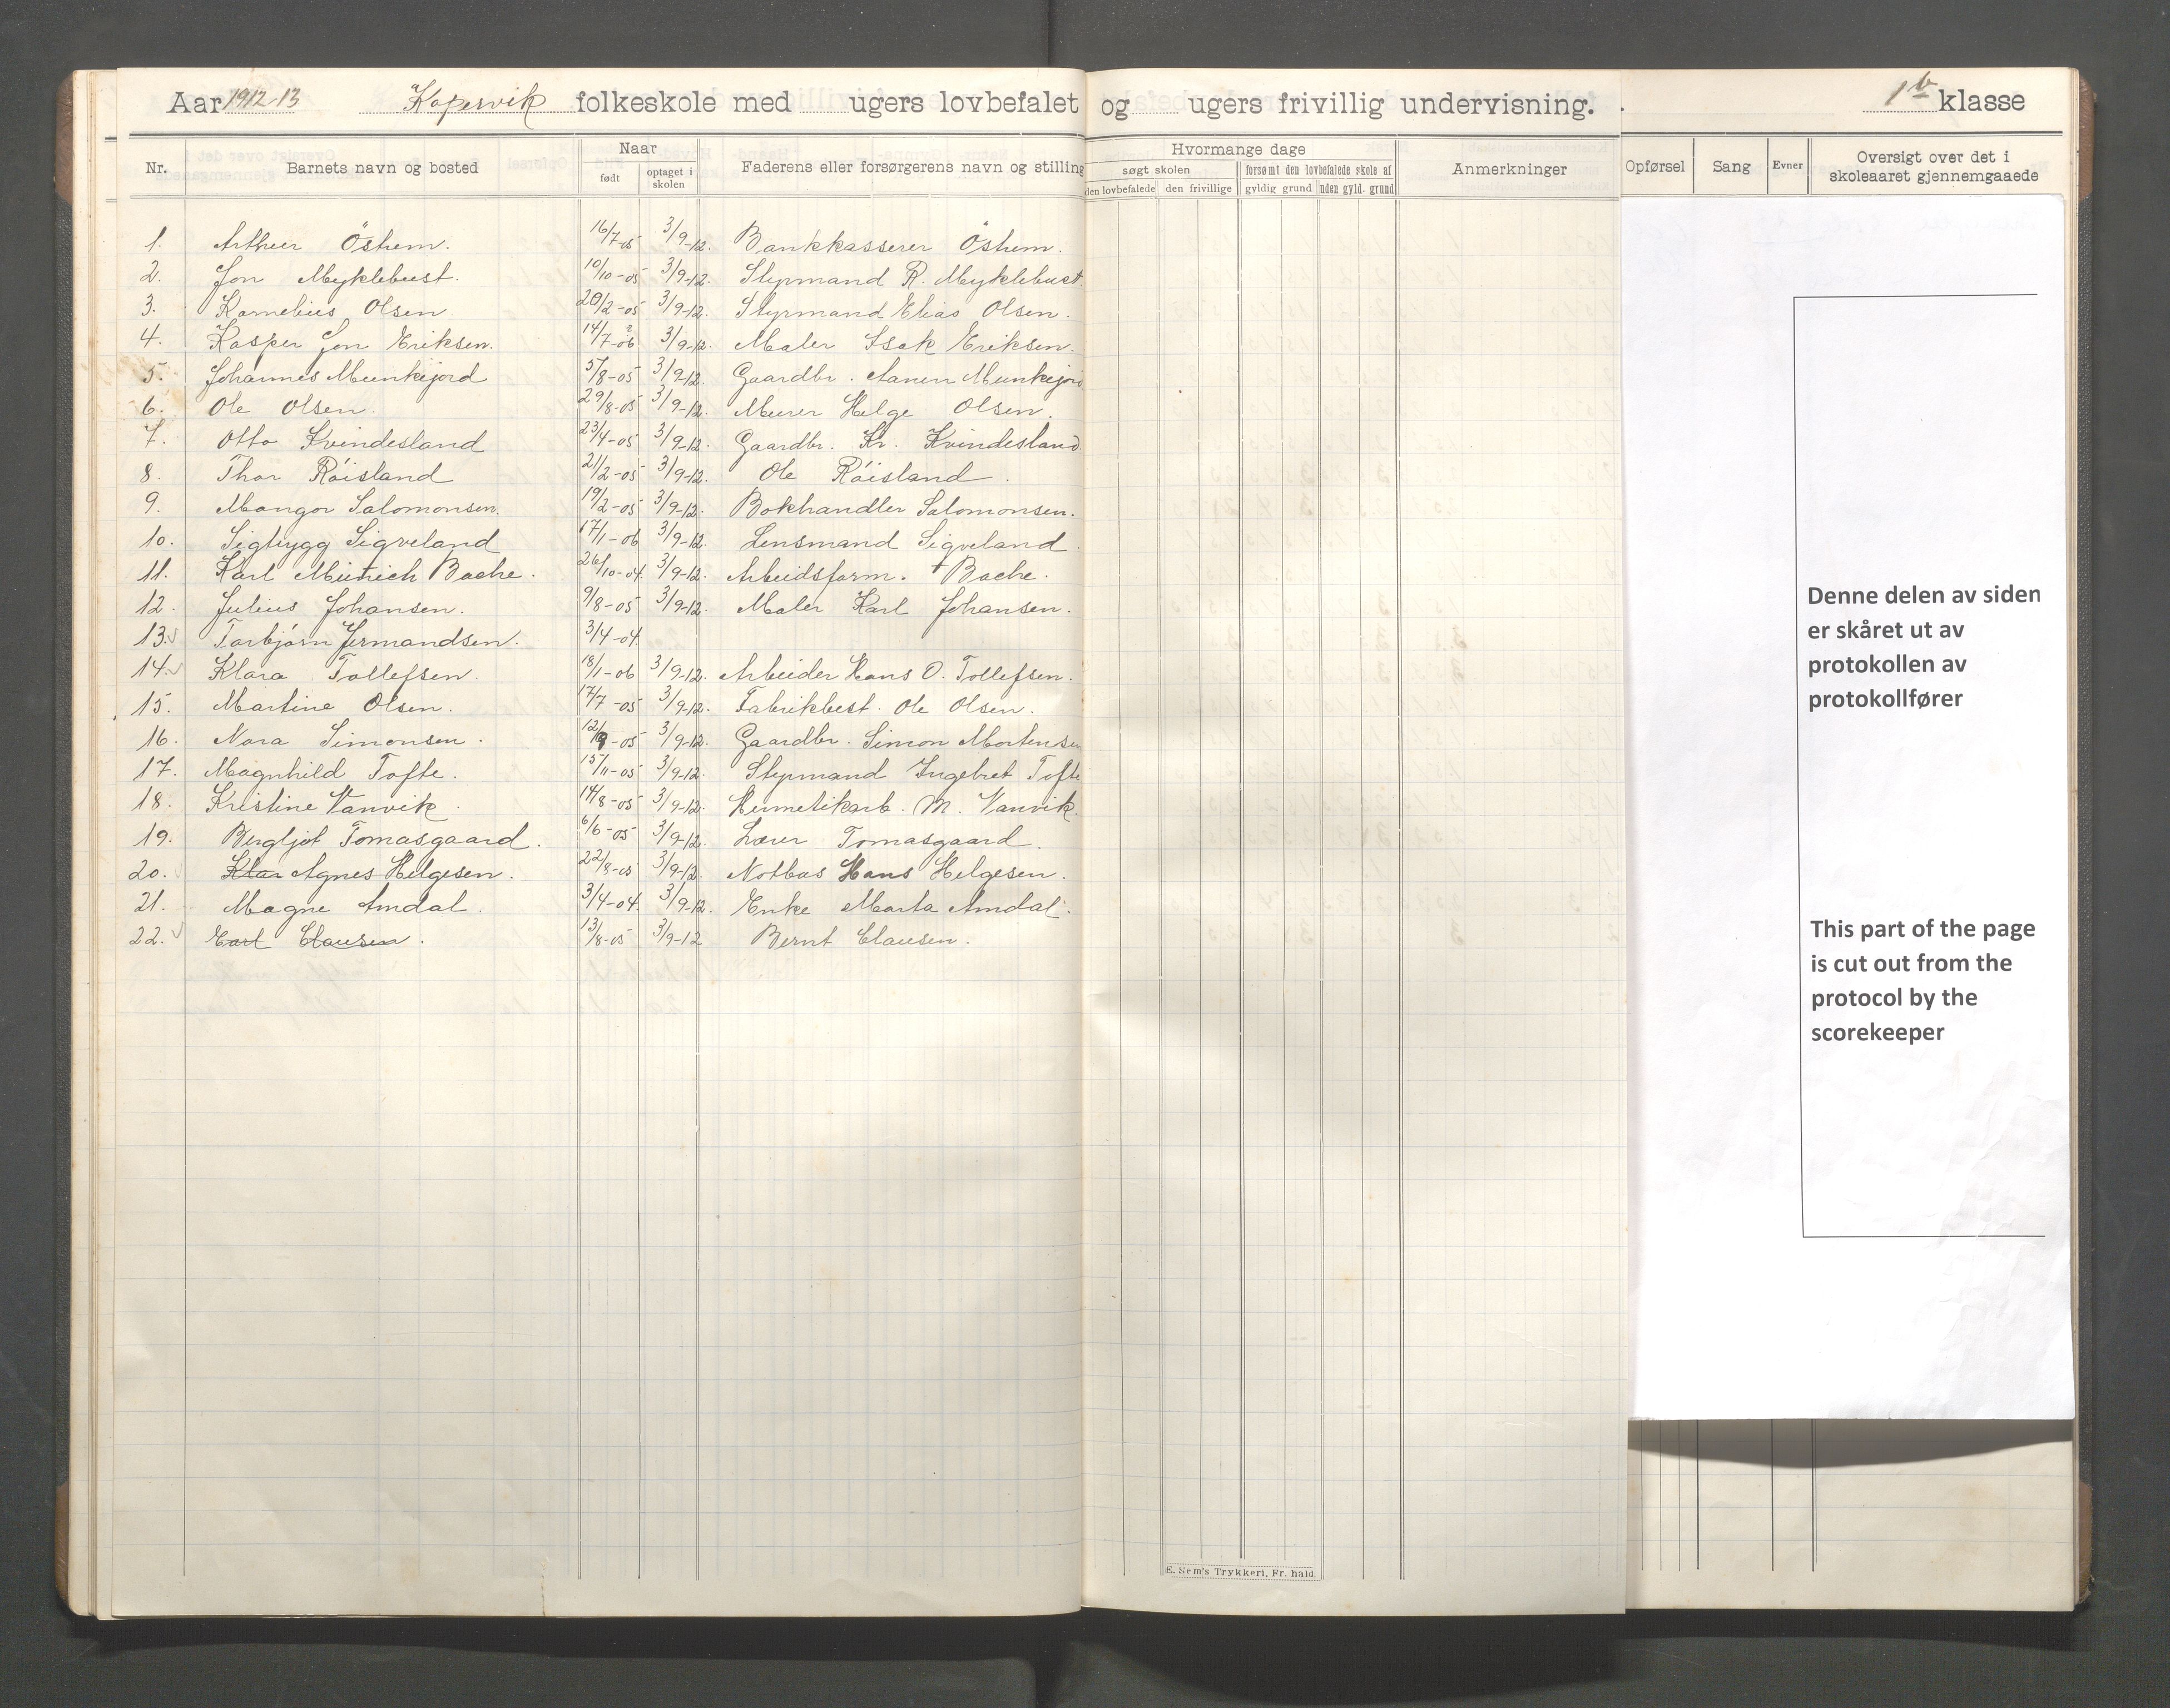 Aar 1912-13 Kopervik folkeskole med ugers lovbefalet og ugers frivillig undervisning. 1b klasse
Nr. Barnets navn og bosted Naar født optaget i skolen Faderens eller forsørgerens navn og stilling Hvormange dage søgt skolen den lovbefalede den frivillige forsømt den lovbefalede skole af gyldig grund uden gyld. grund Anmerkninger Opførsel Sang Evner Oversigt over det i skoleaaret gjennemgaaede
1. Arthur Östhem. 16/7-05 3/9-12. Bankkasserer Östhem.
2. Jon Myklebust. 10/10-05 3/9-12. Styrmand R. Myklebust
3. Kornelius Olsen 20/2-05 3/9-12. Styrmand Elias Olsen.
4. Kasper Jon Eriksen. 14/7-06 3/9-12. Maler Isak Eriksen.
5. Johannes Munkejord 5/8-05 3/9-12. Gaardbr. Aanen Munkejord
6. Ole Olsen. 29/8-05 3/9-12. Murer Helge Olsen.
7. Otto Kvindesland 23/4-05 3/9-12. Gaardbr. Kr. Kvindesland
8. Thor Röisland 21/2-05 3/9-12. Ole Röisland.
9. Mangor Salomonsen. 19/2-05 3/9-12. Bokhandler Salomonsen.
10. Sigtrygg Sigveland 17/1-06 3/9-12. Lensmand Sigveland.
11. Karl Bache. 26/10-04. 3/9-12. Arbeidsform. † Bache.
12. Julius Johansen. 9/8-05 3/9-12. Maler Karl Johansen.
13. Torbjörn Jermandsen. 3/4-04.
14. Klara Tollefsen. 18/1-06 3/9-12. Arbeider Hans O. Tollefsen.
15. Martine Olsen. 17/7-05 3/9-12. Fabrikbest. Ole Olsen.
16. Nora Simonsen. 12/9-05 3/9-12. Gaardbr. Simon Mortensen
17. Magnhild Tofte. 15/11-05 3/9-12. Styrmand Ingebret Tofte
18. Kristine Vanvik. 14/8-05 3/9-12. Hermetikarb. M. Vanvik.
19. Bergljot Tomasgaard. 6/6-05 3/9-12. Lærer Tomasgaard.
20. Klar Agnes Helgesen. 22/8-05 3/9-12. Notbas Hans Helgesen.
21. Magne Amdal. 3/4-04. 3/9-12. Enke Marta Amdal.
22. Earl Clausen. 13/8-05 3/9-12 Bernt Clausen.
Denne delen av siden
er skåret ut av
protokollen av
protokollfører
This part of the page
is cut out from the
protocol by the
scorekeeper
E. Nem's Trykkeri, Fr. hald.